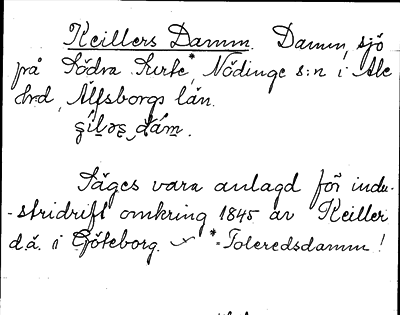 Keillers Damm. Damm, sjö
på Södra Surte*, Nödinge s:n i Ale
hrd, Älfsborgs län.
Säges vara anlagd för indu-
-stridrift omkring 1845 av Keiller
d.ä. i Göteborg. *=Toleredsdamm!